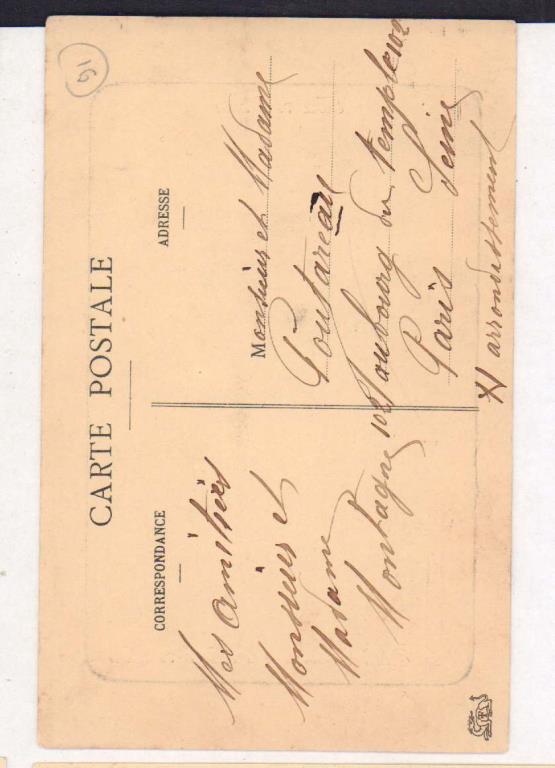 91
CARTE POSTALE
CORRESPONDANCE
ADRESSE
Mes amitiés
Monsieur et
Madame
Montagne
Monsieur et Madame
Poutareau
102 Faubourg du temple 102
Paris Seine
XI arrondissement